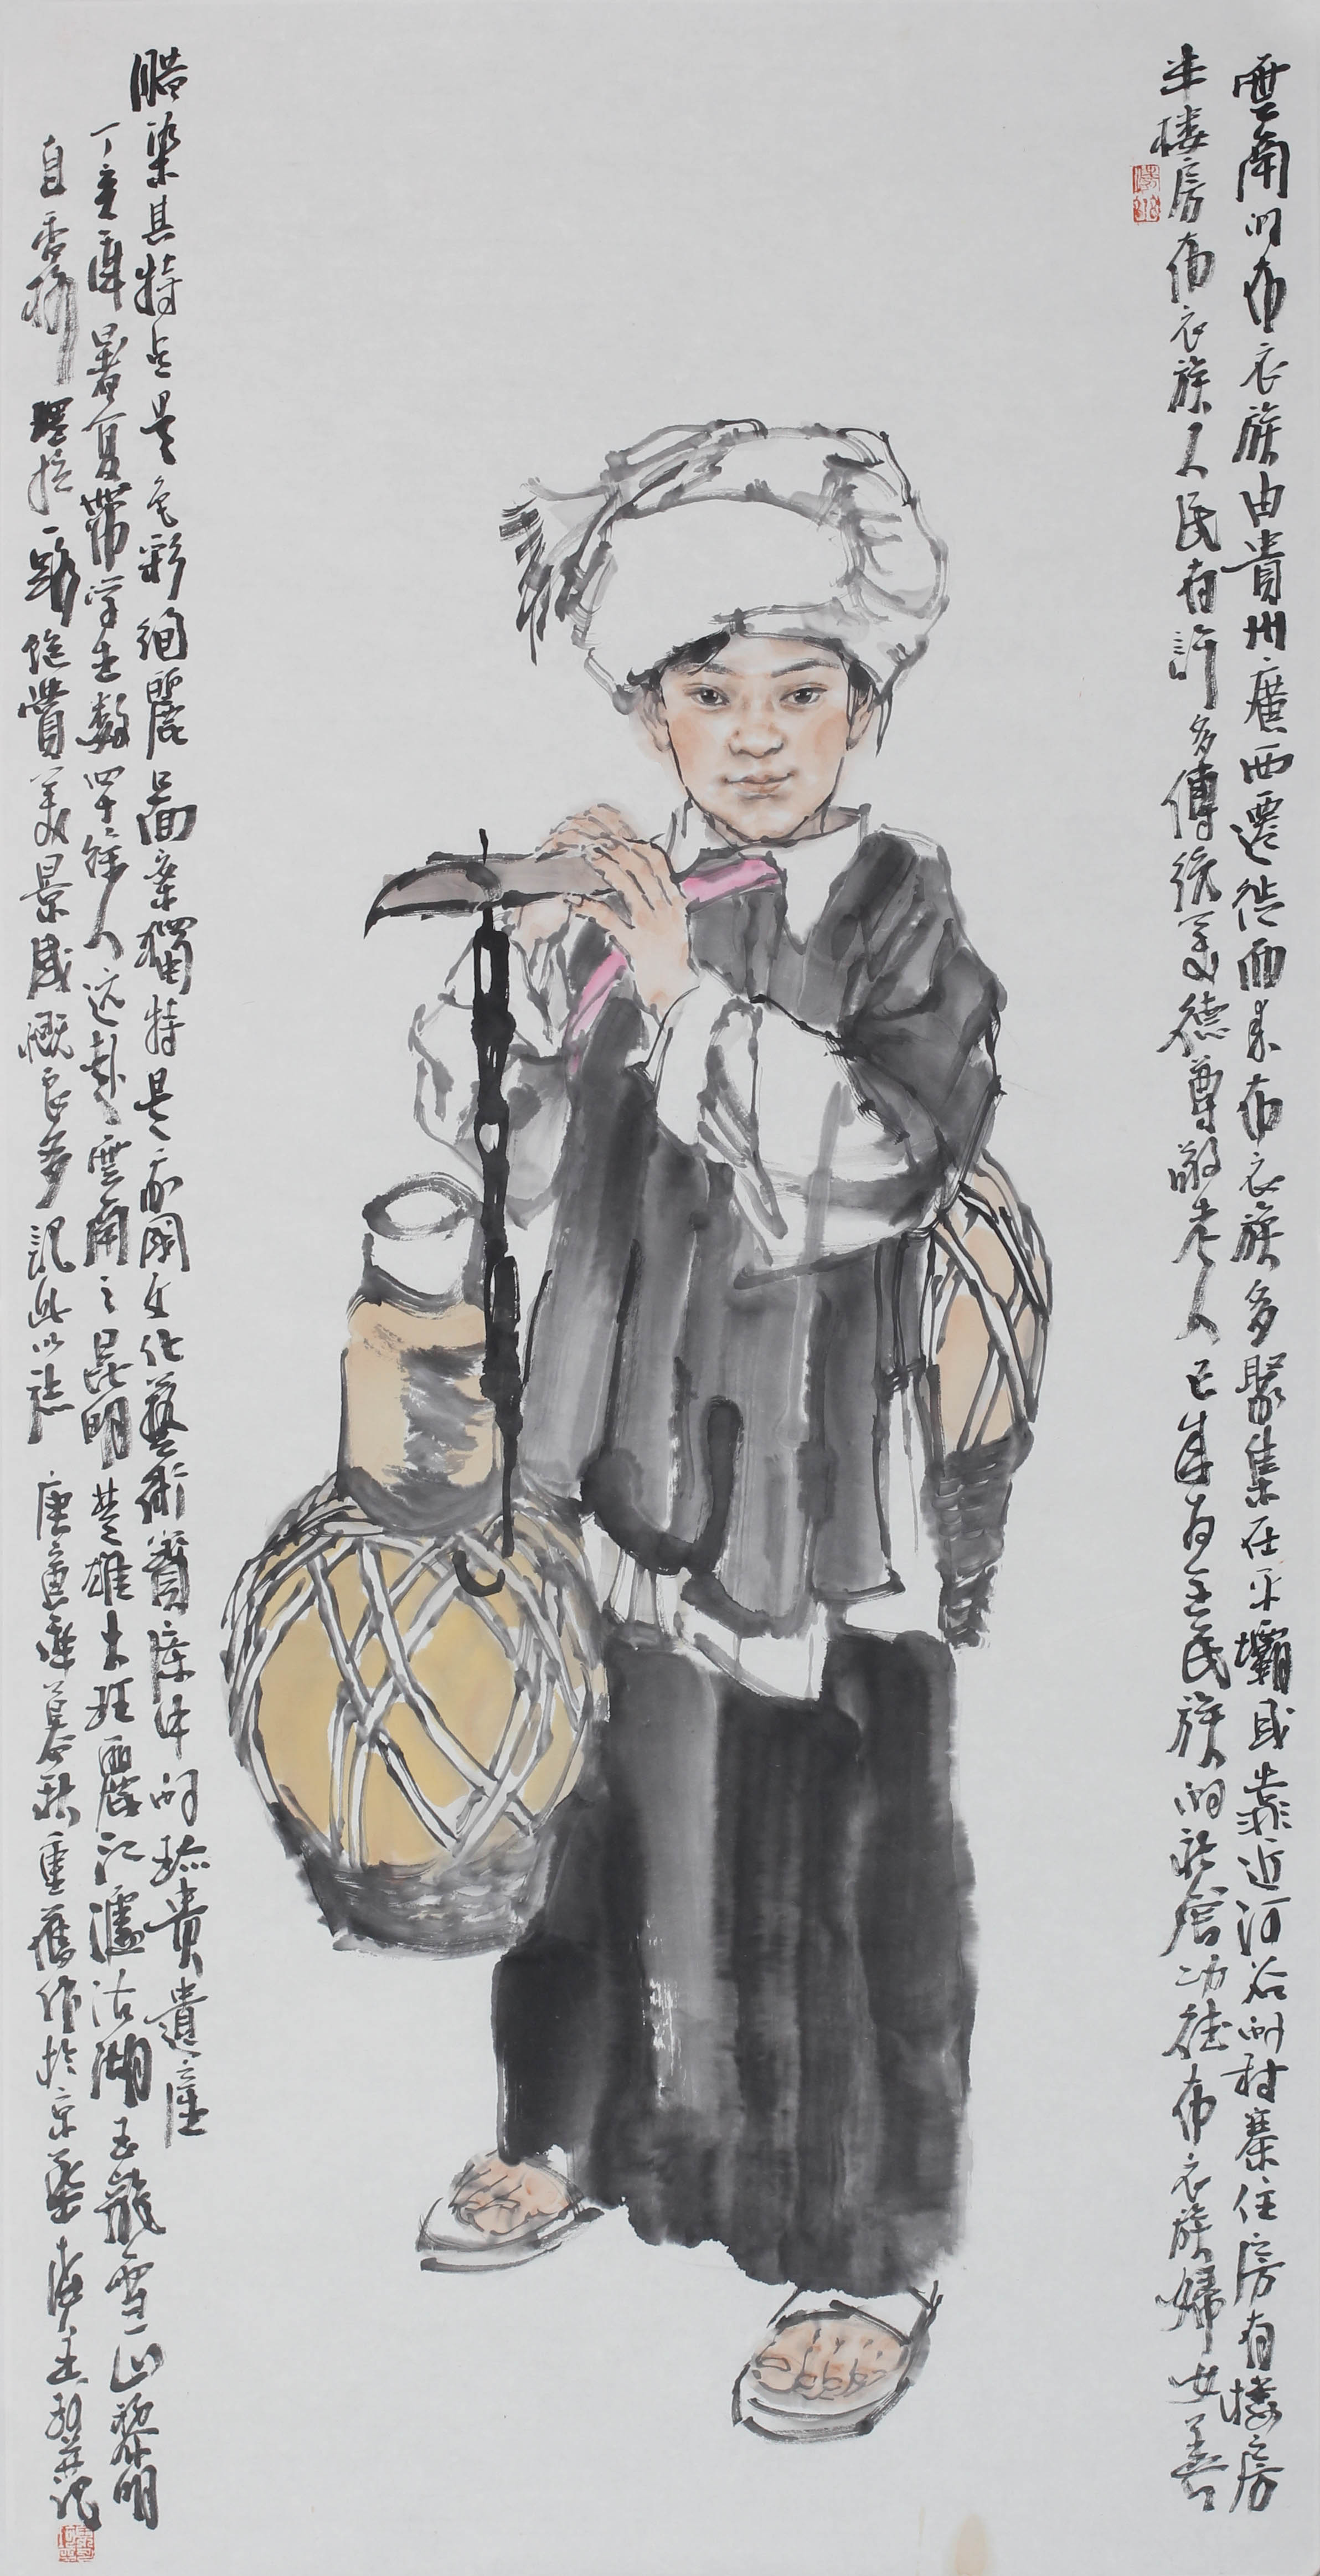 雲南的布衣族由貴州廣西遷徙而来布衣族多聚集在平壩或靠近河谷的村寨住房有樓房
半楼房布衣族人民有許多傳統美德尊敬老人已成为全民族的習慣布衣族婦女善
腊染其特点是色彩絢麗啚案獨特是我國文化藝術寶庫中的珍貴遺産
丁亥年暑夏帶学生数四十餘人远赴雲南之昆明楚雄大理麗江瀘沽湖玉龍雪山黎明
自香格理拉一路飽覽美景感慨良多記此以誌 庚寅年暮秋重舊作於京華 並記